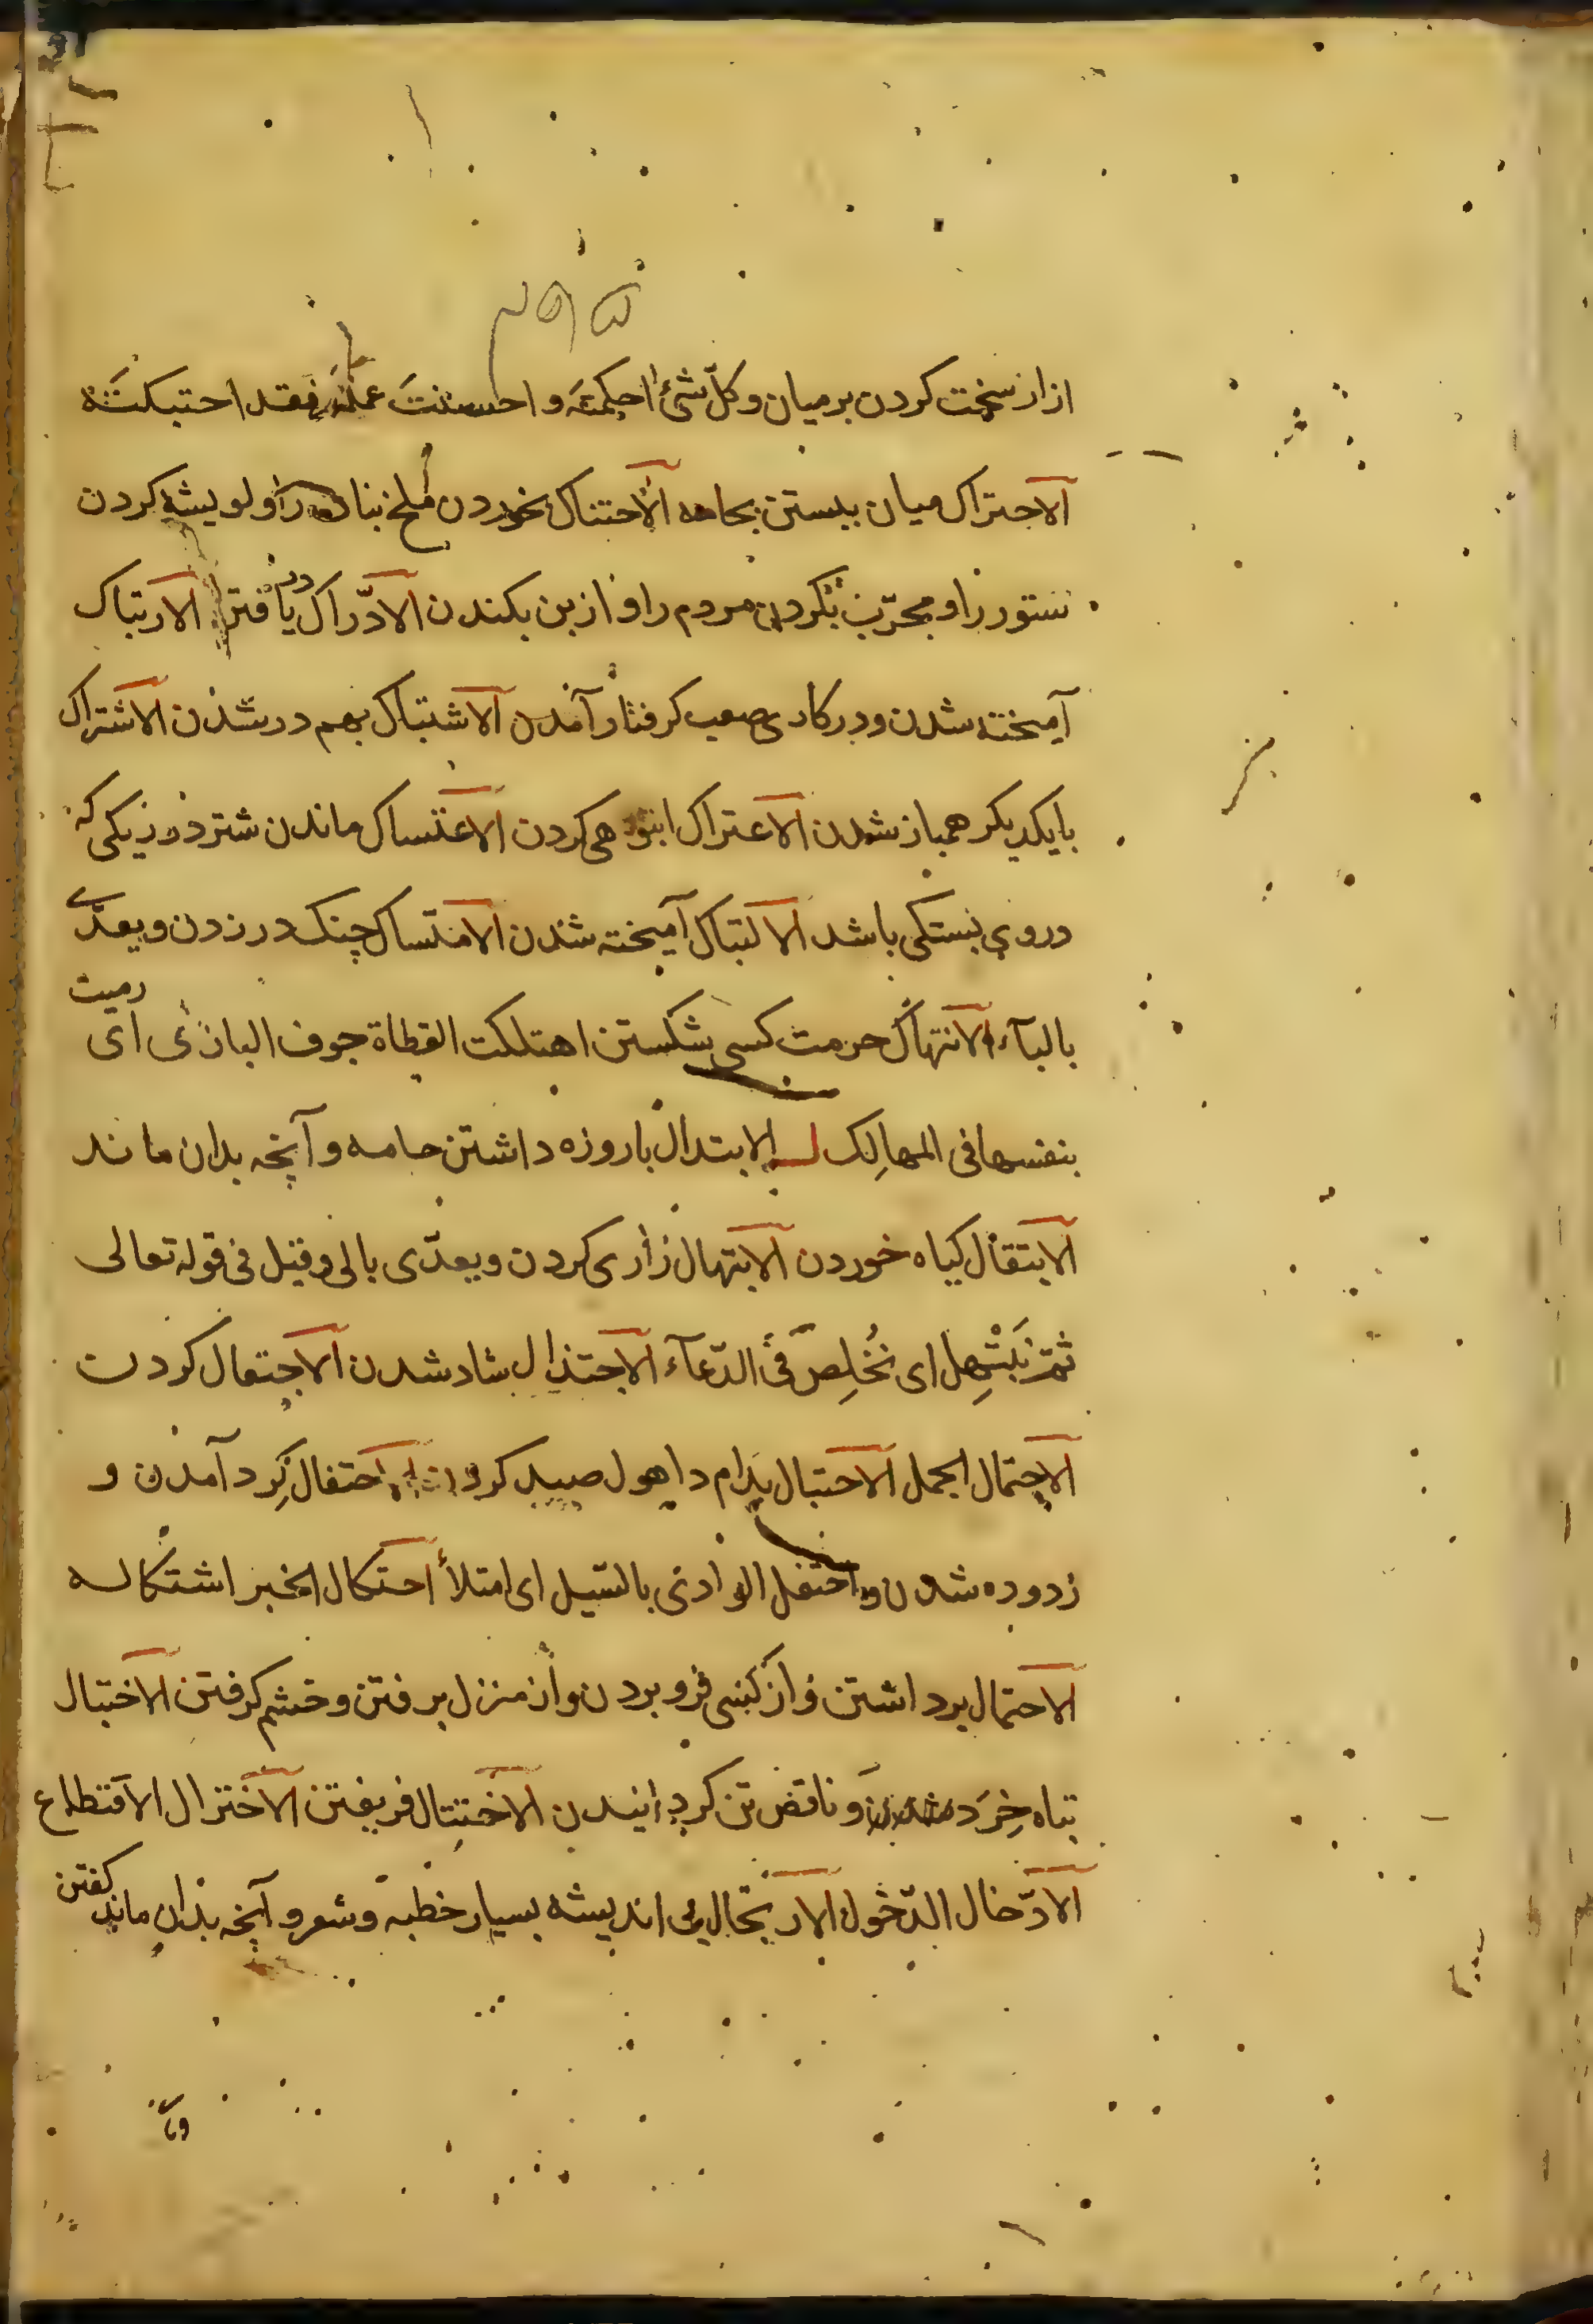 ازار سخت کردن بر میان و کلّ شیٔ احکمتَه و احسنتَ عمله فقد احتبکتَه
الاحتراک میان ببستن بجامه الاحتناک خوردن ملخ نبات را و لویشه کردن
ستور را و مجرّب بکردن مردم را و از بن بکندن الادّراک دریافتن الارتباک
آمیخته شدن و در کاری صعب کرفتار آمدن الاشتباک بهم در شذن الاشتراک
بایکدیکر همباز شدن الاعتراک انبوهی کردن الاعتساک ماندن شتر در ریکی که
در وی بستکی باشد الالتباک آمیخته شذن الامتساک چنک در زدن و یعدّی
بالبآء الانتهاک حرمت کسی بشکستن اهتلکت القطاة جوف البازی ای رمیت
بنفسها فی المهالِک ل الابتدال باروزه داشتن جامه و آنچه بدان ماند
الابتقال کیاه خوردن الابتهال زاری کردن و یعدّی بالی و قیل فی قوله تعالی
ثمّ نَبْتَهِل ای نُخلِص فی الدّعآء الاجتذال شاد شدن الاجتعال کردن
الاجتمال الجمل الاحتبال بدام داهول صید کردن احتفال کِرد آمدن و
زدوده شدن و احتفل الوادی بالسّیل ای امتلأ احتکال الخبر اشتکاله
الاحتمال برداشتن و از کسی فرو بردن و از منزل برفتن و خشم کرفتن الاختبال
تباه خِرَد و ناقص تن کردانیدن الاختتال فریفتن الاختزال الاقتطاع
الادّخال الدّخول الارتجال بی اندیشه بسیار خطبه و شعر و آنچه بذان ماند کفتن